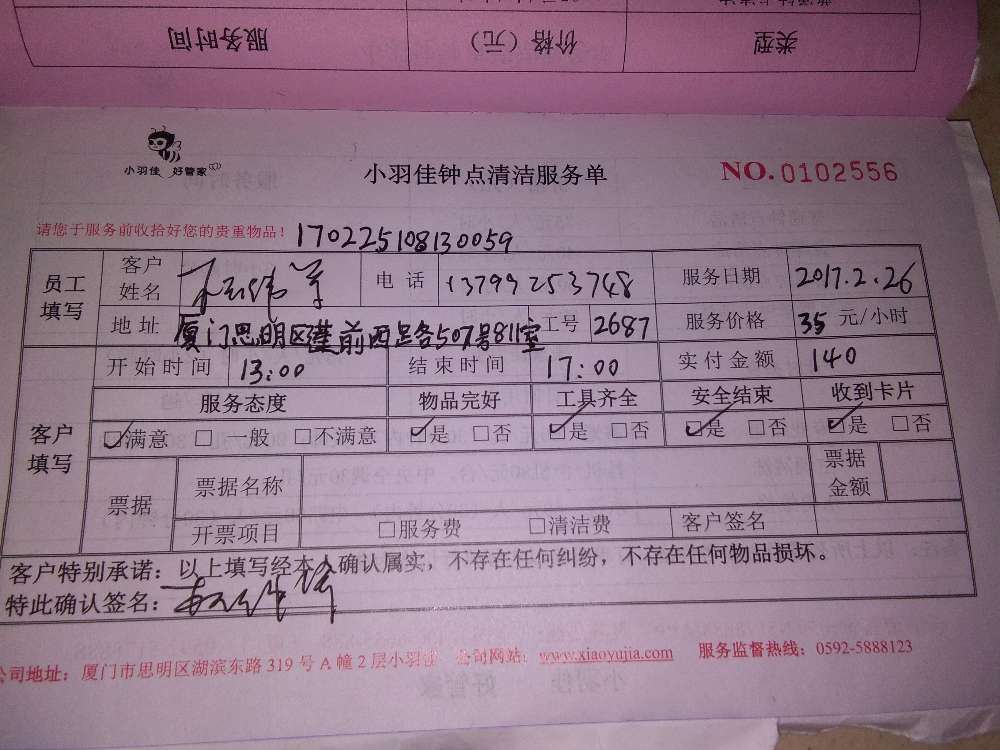 类型 价格（元） 服务时间
小羽佳 好管家
小羽佳钟点清洁服务单
NO. 0102556
请您于服务前收拾好您的贵重物品！ 170225108130059
员工填写 客户姓名 电话 13799253748 服务日期 2017.2.26
地址 厦门思明区莲前西路507号811室 工号 2687 服务价格 35 元/小时
客户填写 开始时间 13:00 结束时间 17:00 实付金额 140
服务态度 物品完好 工具齐全 安全结束 收到卡片
☑满意 □一般 □不满意 ☑是 □否 ☑是 □否 ☑是 □否 ☑是 □否
票据 票据名称 票据金额
开票项目 □服务费 □清洁费 客户签名
客户特别承诺：以上填写经本人确认属实，不存在任何纠纷，不存在任何物品损坏。
特此确认签名：
公司地址：厦门市思明区湖滨东路319号A幢2层小羽佳 公司网站：www.xiaoyujia.com 服务监督热线：0592-5888123
小羽佳 好管家